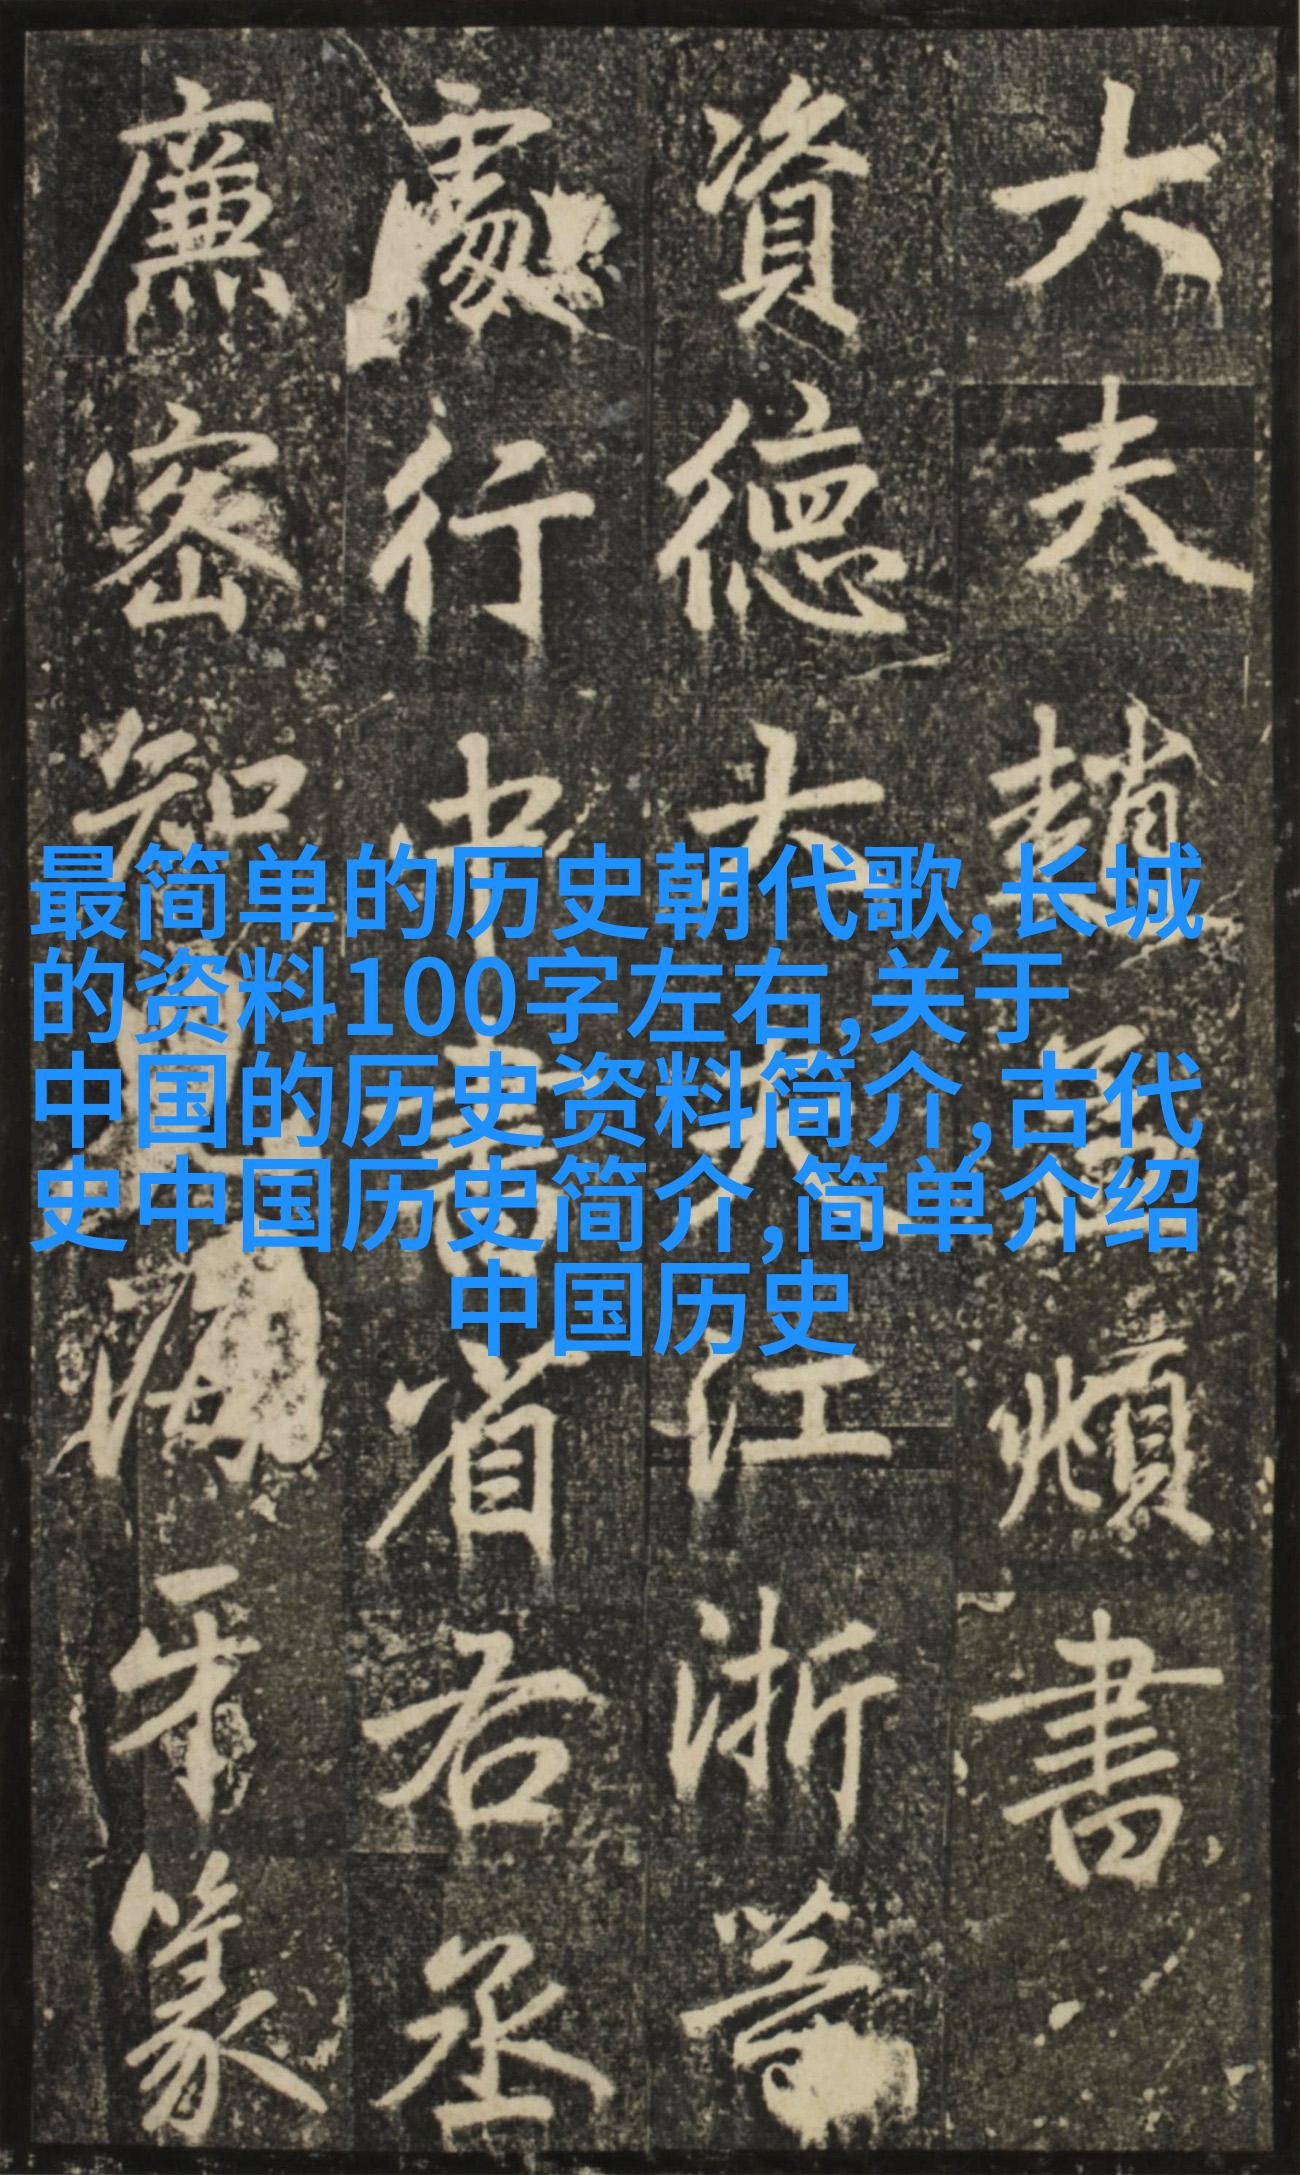 最简单的历史朝代歌,长城
的资料100字左右,关于
中国的历史资料简介,古代
史中国历史简介,简单介绍
中国历史
大夫趙孟頫書
資德大夫江浙等
處行中書省右丞
廉密知海牙篆